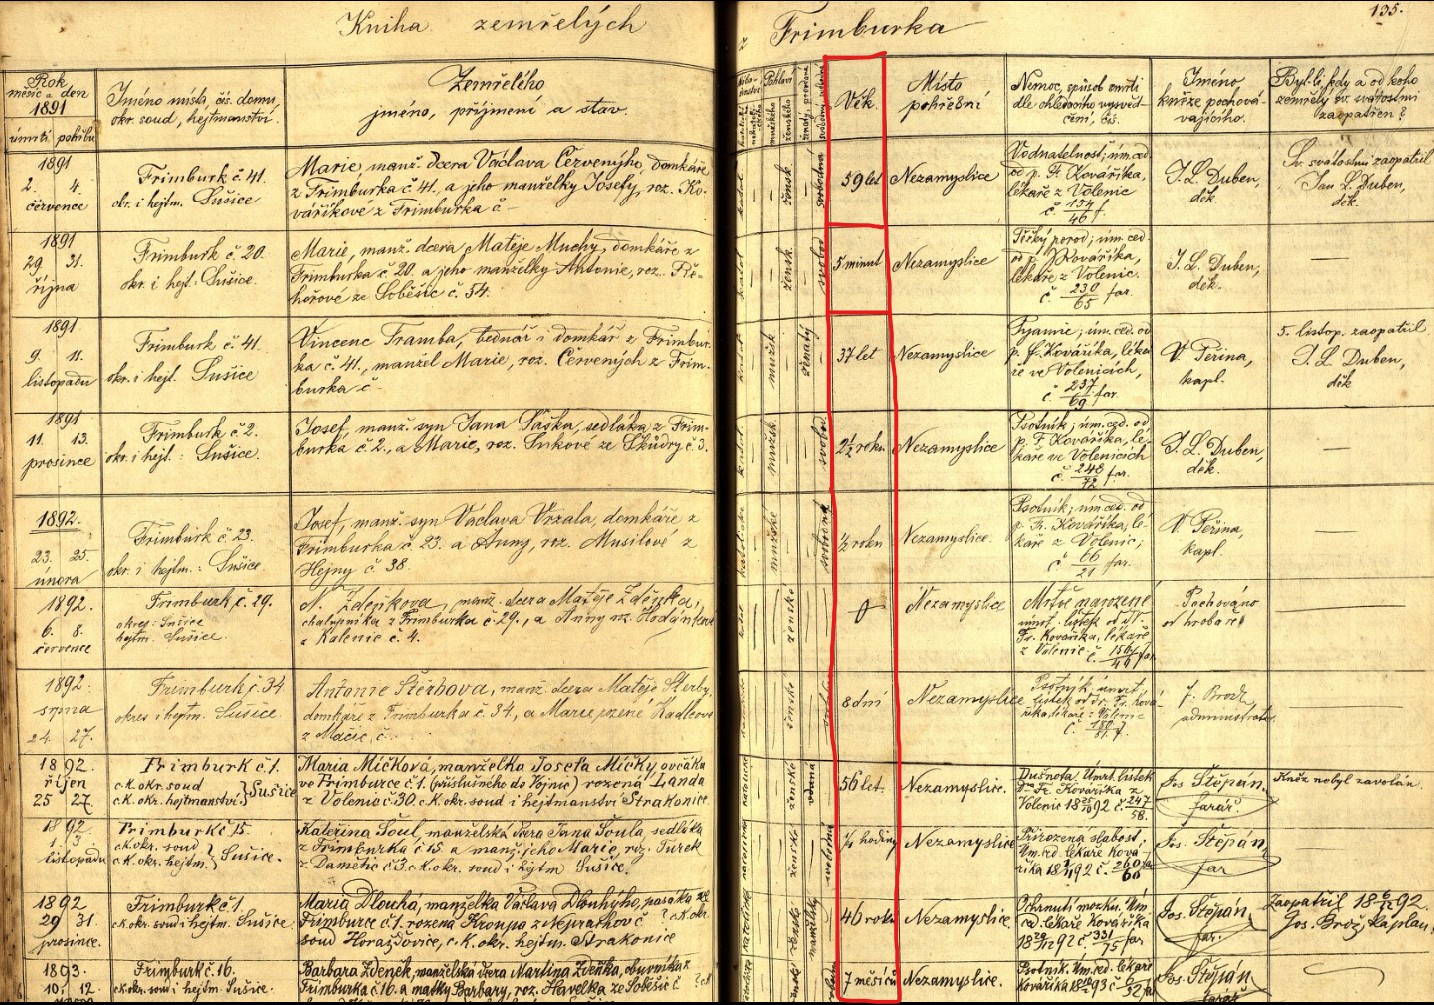 Kniha zemřelých
z Frimburka
135.
Rok
měsíc a den
1891
úmrtí pohřbu
Jméno místa, čís. domu,
okr. soud, hejtmanství.
Zemřelého
jméno, příjmení a stav.
Věk.
Místo
pohřební
Nemoc, způsob smrti
dle ohledacího vysvěd-
čení, čís.
Jméno
kněze pochová-
vajícího.
Byl-li, kdy a od koho
zemřelý sv. svátostmi
zaopatřen?
1891
2. 4.
července
Frimburk č. 41.
okr. i hejtm. Sušice
Marie, manž. dcera Václava Červenýho, domkáře
z Frimburka č. 41, a jeho manželky Josefy, roz. Ko-
váříkové z Frimburka č –
katol.
žensk.
svobodná
59 let
Nezamyslice
Vodnatelnost; úm. ced.
od p. F. Kovaříka,
lékaře z Volenic
č. 154/46 f.
J. L. Duben,
děk.
Sv. svátostmi zaopatřil
Jan L. Duben,
děk.
1891
29 31.
října
Frimburk č. 20.
okr. i hejt. Sušice.
Marie, manž. dcera Matěje Muchy, domkáře z
Frimburka č. 20. a jeho manželky Antonie, roz.
ze Soběšic č. 54.
žensk.
svobod
5 minut
Nezamyslice
Těžký porod; úm. ced
od p. Kovaříka,
lékaře z Volenic.
č. 230/65 far.
J. L. Duben,
děk.
1891
9. 11.
listopadu
Frimburk č. 41.
okr. i hejt. Sušice
Vincenc Tramba, bednář i domkář z Frimbur-
ka č. 41., manžel Marie, roz. Červených z Frim-
burka č –
mužsk
ženatý
37 let
Nezamyslice
Pyæmie; úm. ced. od
p. f. Kovaříka, léka-
ře ve Volenicích,
č. 237/69 far.
V. Peřina,
kapl.
5. listop. zaopatřil
J. L. Duben,
děk
1891
11. 13.
prosince
Frimburk č 2.
okr. i hejt.: Sušice.
Josef, manž. syn Jana Paška, sedláka z Frim-
burka č. 2., a Marie, roz. Sukové ze Škůdry č. 3.
mužsk
svobod
2½ roku
Nezamyslice
Psotník; úm. ced. od
p. F. Kovaříka, lé-
kaře ve Volenicích
č. 248/72 far.
J. L. Duben,
děk.
1892.
23. 25.
února
Frimburk č. 23.
okr. i hejtm.: Sušice.
Josef, manž. syn Václava Vrzala, domkáře z
Frimburka č. 23. a Anny, roz. Musilové z
Hejny č 38.
mužské
svobodný
½ roku
Nezamyslice.
Psotník; úm. ced. od
p. Fr. Kovaříka, lé-
kaře z Volenic;
č 66/21 far.
V. Peřina,
kapl.
1892.
6. 8.
července
Frimburk, č. 29.
okres: Sušice
hejtm. Sušice.
N. Zdeňkova, manž. dcera Matěje Zdeňka,
chalupníka z Frimburka č. 29., a Anny roz. Hodánkové
z Kalenic č. 4.
ženské
0
Nezamyslice
Mrtvě narozené
úmrt. lístek od
Fr. Kovaříka, lékaře
z Volenic č. 156/49 far
Pochováno
od hrobaře
1892.
srpna
24. 27.
Frimburk č. 34.
okres i hejtm. Sušice.
Antonie Štěrbova, manž. dcera Matěje Štěrby,
domkáře z Frimburka č. 34, a Marie, rozené Kadlcové
z Mačic, č.
ženské
8 dní
Nezamyslice
Psotník, úmrt.
lístek od dr. Fr. Kova-
říka, lékaře z Volenic
č. 180/51. f.
f. Brodz,
administrátor
1892.
říjen
25 27.
Frimburk č 1.
c.k. okr. soud
c.k. okr. hejtmanství. } Sušice
Maria Míčková, manželka Josefa Míčky ovčáka
ve Frimburce č. 1. (příslušného do Vojnic) rozená Landa
z Volenic č. 30. c.k. okr. soud i hejtmanství Strakonice.
ženské
vdaná
56 let.
Nezamyslice.
Dušnota. Úmrt. lístek
Dra Fr. Kovaříka z
Volenic 18 25/10 92 č. 247/58.
Jos. Štěpán,
farář.
Kněz nebyl zavolán.
1892
1. 3
listopadu
Frimburk č 15.
c.k. okr. soud
c.k. okr. hejtm. } Sušice.
Kateřina Šoul, manželská dcera Jana Šoula, sedláka
z Frimburka č. 15. a manž. jeho Marie, roz. Turek
z Damětic č. 3. c.k. okr. soud i hejtm Sušice.
ženské
svobodná
½ hodiny
Nezamyslice
Přirozená slabost;
Úm. ced. lékaře Kova-
říka 18 1/11 92 č. 260/60 fa
Jos. Štěpán,
far
1892
29 31
prosince.
Frimburk č 1
c.k. okr. soud i hejtm. Sušice.
Maria Dlouhá, manželka Václava Dlouhýho, pasáka ze
Frimburce č. 1. rozená Kroupa z Neprachov č ? c.k. okr.
soud Horažďovice, c.k. okr. hejtm. Strakonice
manželský
46 roků
Nezamyslice.
Ochrnutí mozku. Úm.
ced. lékaře Kovaříka
18 29/12 92 č. 331/75 far
Jos. Štěpán
far.
Zaopatřil 18 6/12 92.
Jos. Brož, kaplan.
1893.
10. 12.
února
Frimburk č. 16.
c.k. okr. soud i hejtm. Sušice.
Barbara Zdeněk, manželská dcera Martina Zdeňka, obuvníka z
Frimburka č. 16. a matky Barbary, roz. Havelka ze Soběšic č
7 měsíců
Nezamyslice.
Psotník. Úm. ced. lékaře
Kovaříka 18 93 č 6/32 fa
Jos. Štěpán
farář